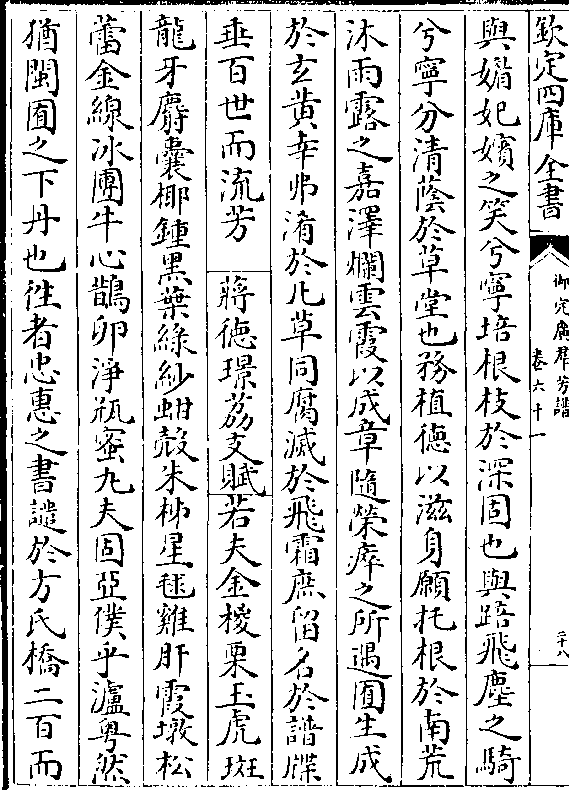 欽定四庫全書
御定廣群芳譜
卷六十一
二十八
與媚妃嬪之笑兮寧培根枝於深固也與踣飛塵之騎
兮寧分清蔭於草堂也務植德以滋身願托根於南荒
沐雨露之嘉澤爛雲霞以成章隨榮瘁之所遇囿生成
於玄黄幸弗淆於凡草同腐滅於飛霜庶留名於譜牒
垂百世而流芳 蔣德璟荔支賦若夫金椶栗玉虎斑
龍牙麝囊椰鍾黒葉緑紗蚶殻朱柹星毬雞肝霞墩松
蕾金線冰團牛心鵲卵淨瓶蜜丸夫固亞僕乎瀘粤然
猶閩囿之下丹也徃者忠惠之書譴於方氏橋二百而